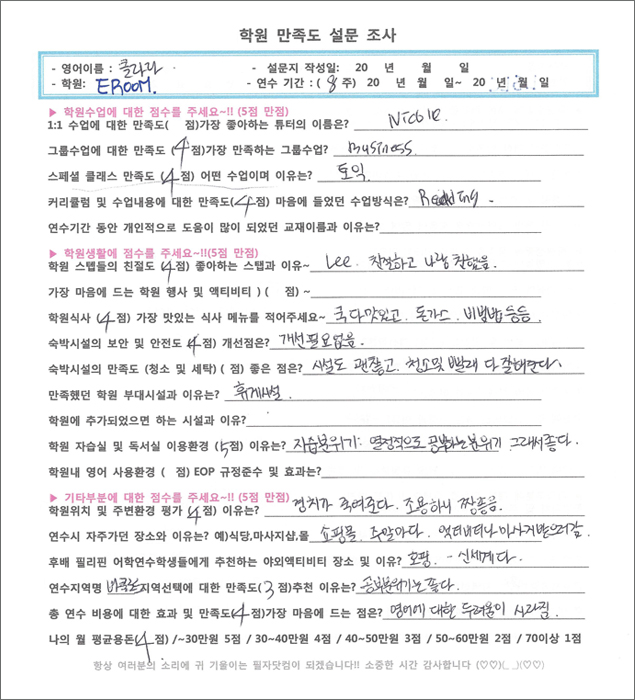 학원 만족도 설문 조사
- 영어이름 : 클라라 - 설문지 작성일: 20 년 월 일
- 학원: EROOM. - 연수 기간 : ( 8 주) 20 년 월 일~ 20 년 월 일
▶ 학원수업에 대한 점수를 주세요~!! (5점 만점)
1:1 수업에 대한 만족도( 점)가장 좋아하는 튜터의 이름은? Nicole
그룹수업에 대한 만족도 ( 4 점)가장 만족하는 그룹수업? Business
스페셜 클래스 만족도 ( 4 점) 어떤 수업이며 이유는? 토익
커리큘럼 및 수업내용에 대한 만족도( 4 점) 마음에 들었던 수업방식은?
연수기간 동안 개인적으로 도움이 많이 되었던 교재이름과 이유는?
▶ 학원생활에 점수를 주세요~!!(5점 만점)
학원 스텝들의 친절도 ( 4 점) 좋아하는 스탭과 이유~ Lee. 친절하고 나랑 친했음.
가장 마음에 드는 학원 행사 및 액티비티 ) ( 점) ~
학원식사 ( 4 점) 가장 맛있는 식사 메뉴를 적어주세요~ 국 다 맛있고. 돈가스. 비빔밥 등등
숙박시설의 보안 및 안전도 ( 4 점) 개선점은? 개선필요없음.
숙박시설의 만족도 (청소 및 세탁) ( 점) 좋은 점은? 시설도 괜찮고. 청소및 빨래 다 잘해준다.
만족했던 학원 부대시설과 이유는? 휴게시설.
학원에 추가되었으면 하는 시설과 이유?
학원 자습실 및 독서실 이용환경 ( 5 점) 이유는? 자습분위기: 열정적으로 공부하는 분위기 그래서 좋다.
학원내 영어 사용환경 ( 점) EOP 규정준수 및 효과는?
▶ 기타부분에 대한 점수를 주세요~!! (5점 만점)
학원위치 및 주변환경 평가 ( 4 점) 이유는? 경치가 죽여준다. 조용하니 짱좋음.
연수시 자주가던 장소와 이유는? 예)식당,마사지샵,몰 쇼핑몰. 주말마다. 액티비티나 마사지받으러감.
후배 필리핀 어학연수학생들에게 추천하는 야외액티비티 장소 및 이유? 호핑. - 신세계다.
연수지역명 바콜로드 지역선택에 대한 만족도( 3 점)추천 이유는? 공부분위기는 좋다.
총 연수 비용에 대한 효과 및 만족도( 4 점)가장 마음에 드는 점은? 영어에 대한 두려움이 사라짐.
나의 월 평균용돈( 4 점) /~30만원 5점 / 30~40만원 4점 / 40~50만원 3점 / 50~60만원 2점 / 70이상 1점
항상 여러분의 소리에 귀 기울이는 필자닷컴이 되겠습니다!! 소중한 시간 감사합니다 (♡♡)(_ _)(♡♡)